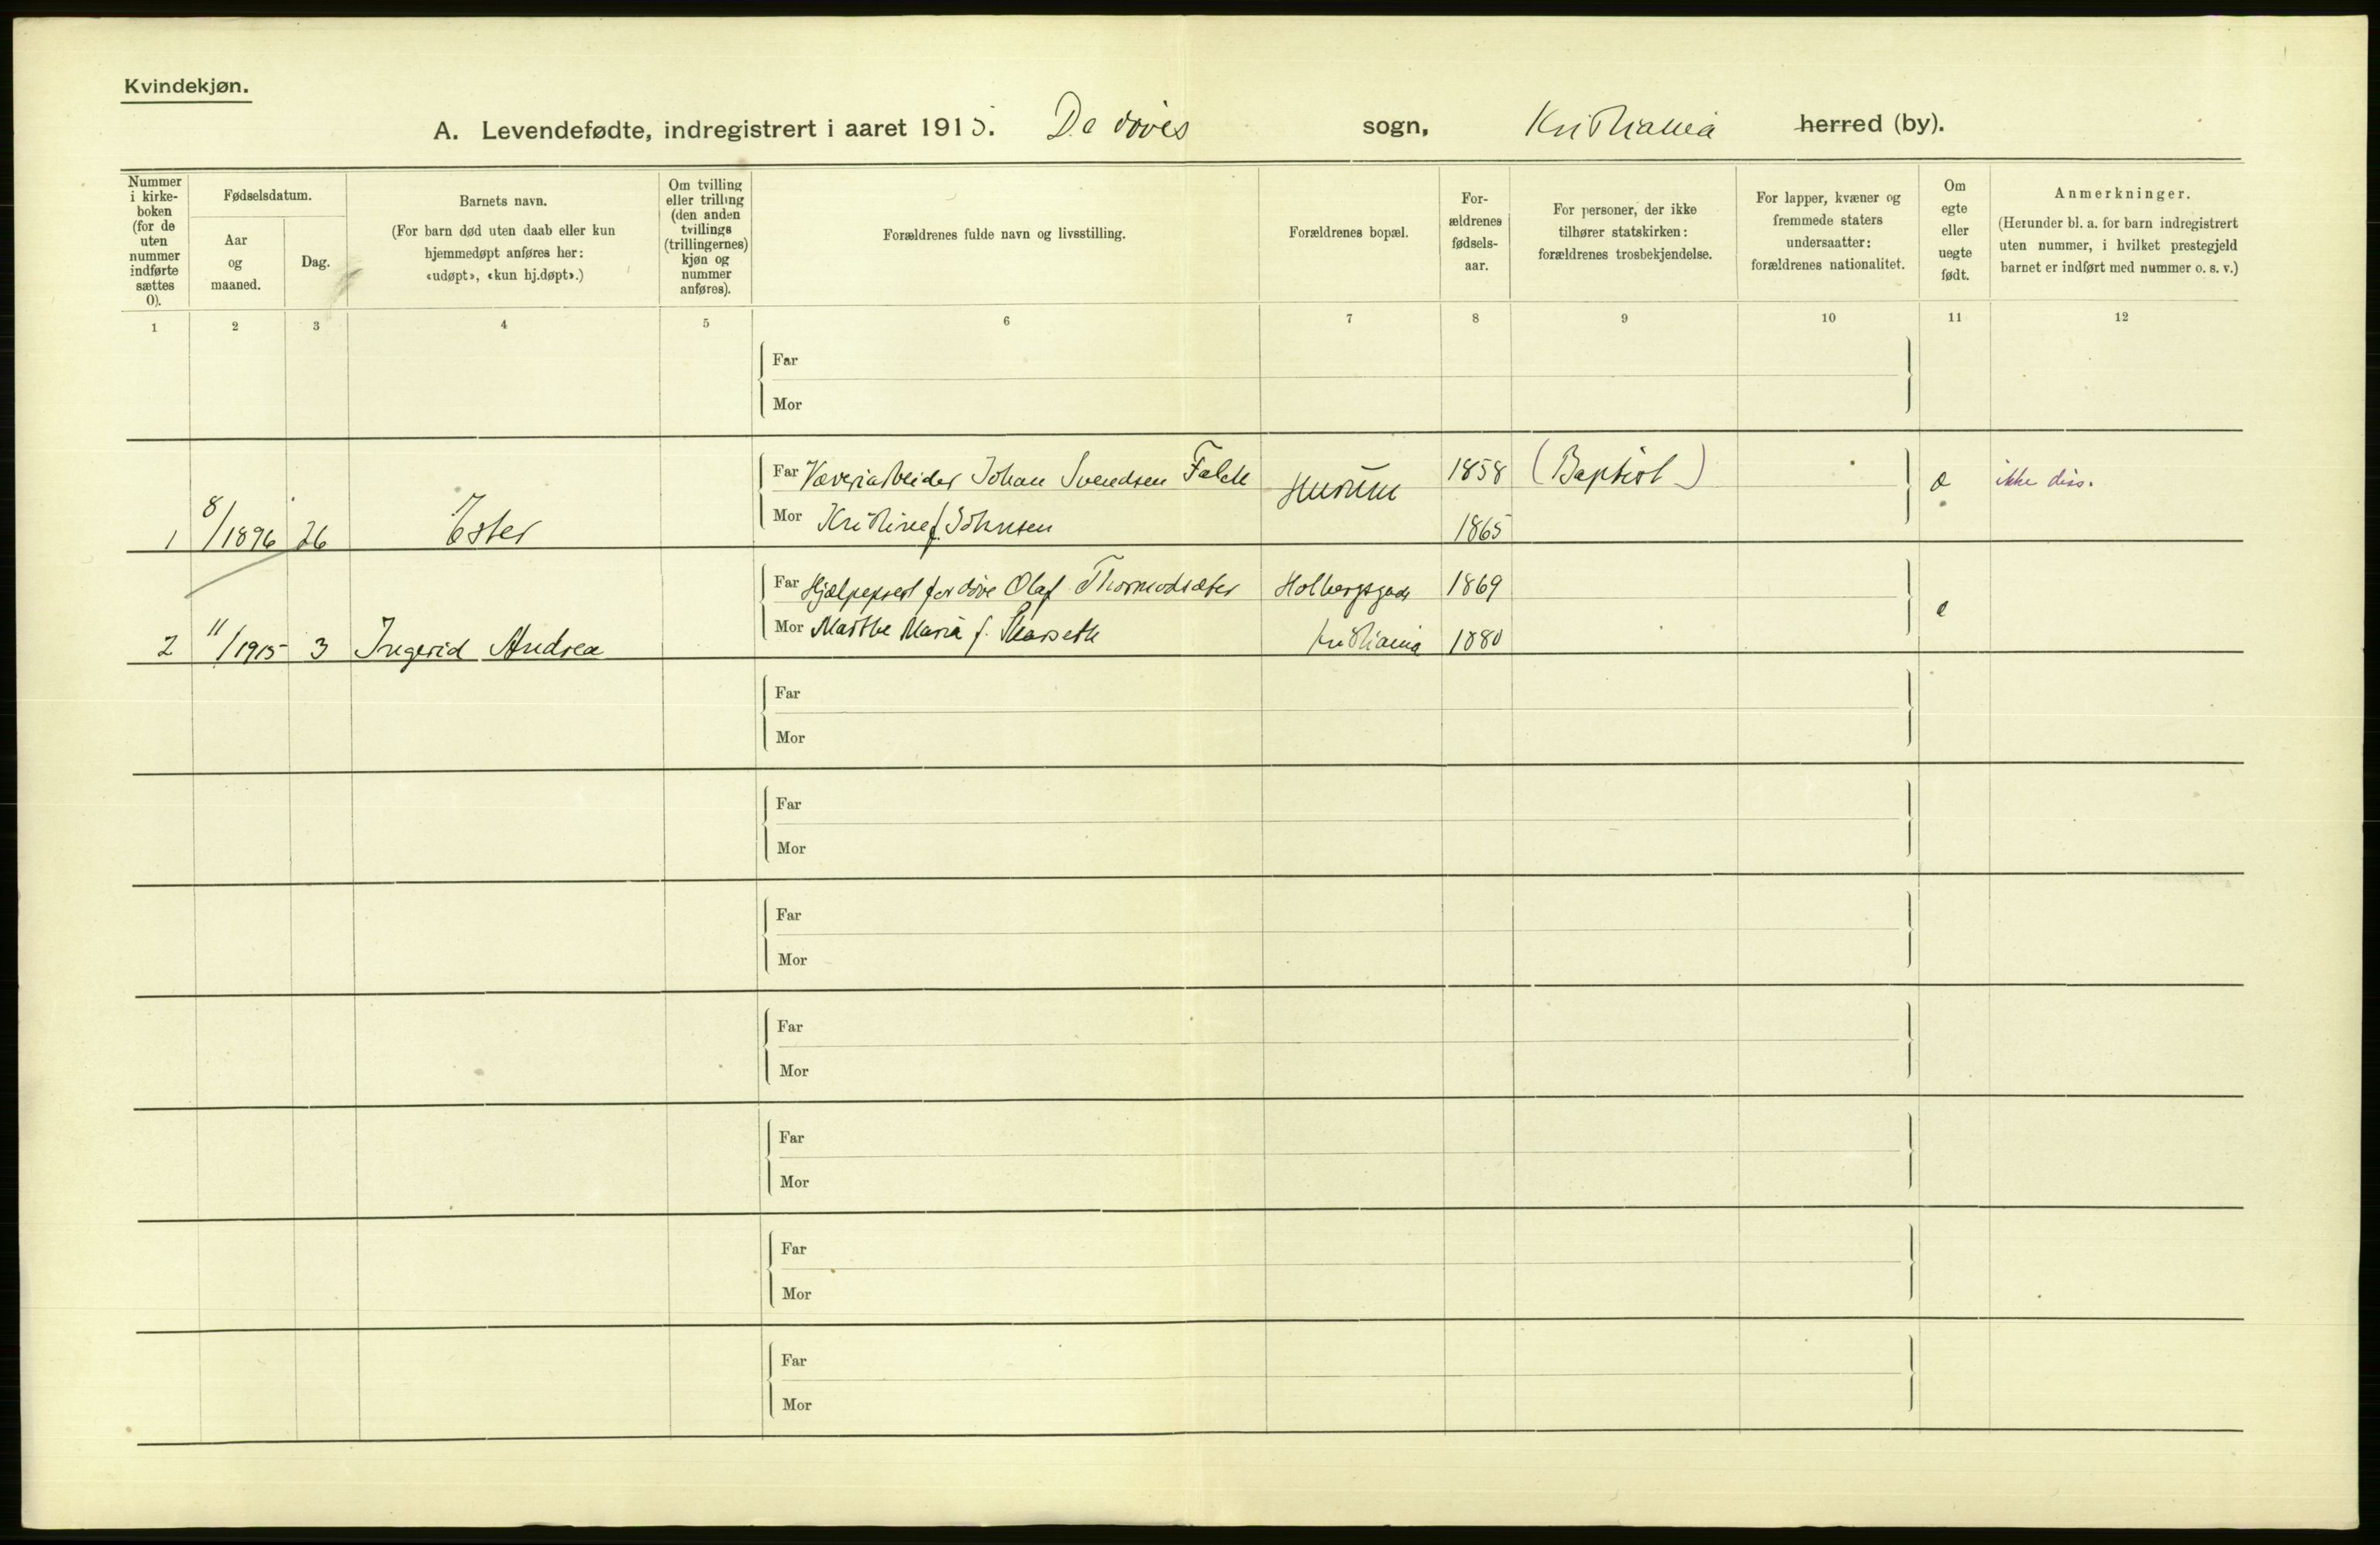 Kvindekjøn.
A. Levendefødte, indregistrert i aaret 1915. De døves sogn, Kristiania herred (by).
Nummer i kirke-boken (for de uten nummer indførte sættes 0).
Fødselsdatum.
Aar og maaned.
Dag.
Barnets navn.
(For barn død uten daab eller kun hjemmedøpt anføres her: «udøpt», «kun hj.døpt».)
Om tvilling eller trilling (den anden tvillings (trillingernes) kjøn og nummer anføres).
Forældrenes fulde navn og livsstilling.
Forældrenes bopæl.
For-ældrenes fødsels-aar.
For personer, der ikke tilhører statskirken: forældrenes trosbekjendelse.
For lapper, kvæner og fremmede staters undersaatter: forældrenes nationalitet.
Om egte eller uegte født.
Anmerkninger.
(Herunder bl. a. for barn indregistrert uten nummer, i hvilket prestegjeld barnet er indført med nummer o. s. v.)
1 2 3 4 5 6 7 8 9 10 11 12
Far
Mor
Far Væveriarbeider Johan Svendsen Falck Hurum 1858 (Baptist) e ikke diss.
Mor Kristine f. Johnsen 1865
1 8/1896 26 Ester
Far Hjælpeprest for døve Olaf Thormodsæter Holbergsgade 1869 e
Mor Marthe Maria f. Kristiania 1880
2 11/1915 3 Ingerid Andrea
Far
Mor
Far
Mor
Far
Mor
Far
Mor
Far
Mor
Far
Mor
Far
Mor